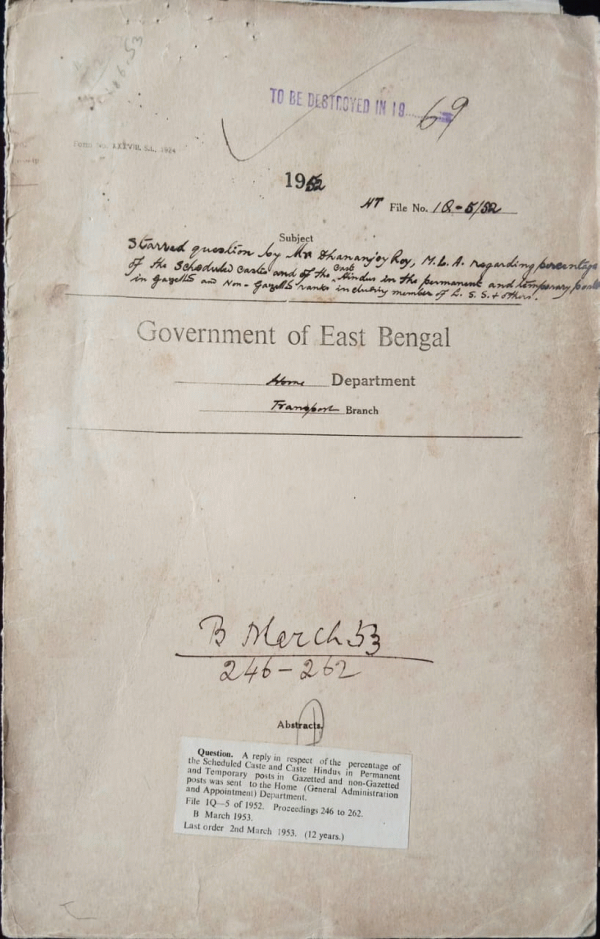 TO BE DESTROYED IN 19 69
1952
HT File No. 1Q-5/52
Subject
Starred question by Mr Dhananjoy Roy, M.L.A. regarding percentage
of the Scheduled Caste and of the Cast Hindus in the permanent and temporary posts
in Gazetted and Non-Gazetted ranks including member of E.S.S. & others.
Government of East Bengal
Home Department
Transport Branch
B March 53
246-262
Abstracts.
Question. A reply in respect of the percentage of
the Scheduled Caste and Caste Hindus in Permanent
and Temporary posts in Gazetted and non-Gazetted
posts was sent to the Home (General Administration
and Appointment) Department.
File 1Q—5 of 1952. Proceedings 246 to 262.
B March 1953.
Last order 2nd March 1953. (12 years.)